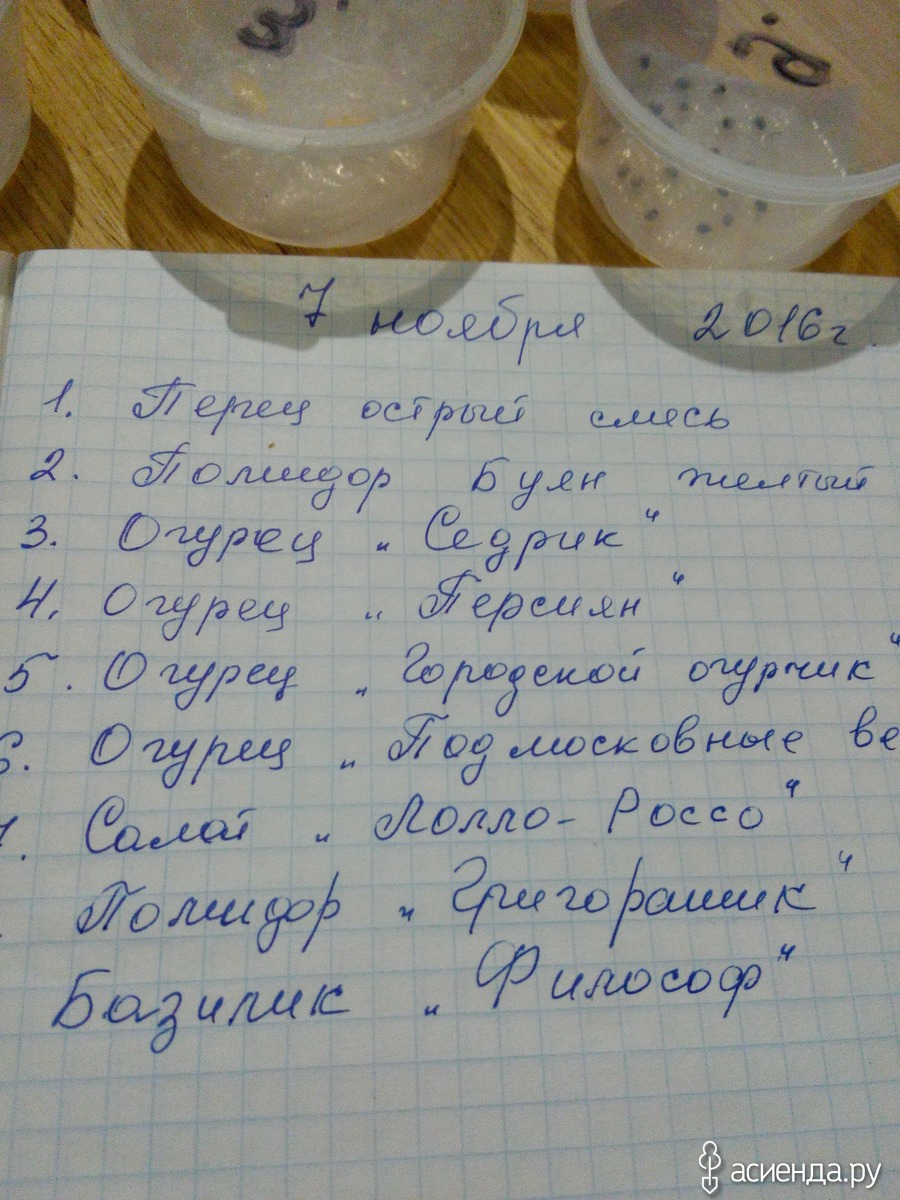 3.
9.
7 ноября 2016г.
1. Перец острый смесь
2. Помидор Буян желтый
3. Огурец „Седрик"
4. Огурец „Персиян"
5. Огурец „Городской огурчик"
6. Огурец „Подмосковные ве
7. Салат „Лолло-Россо"
Помидор „Григорашик"
Базилик „Философ"
асиенда.ру